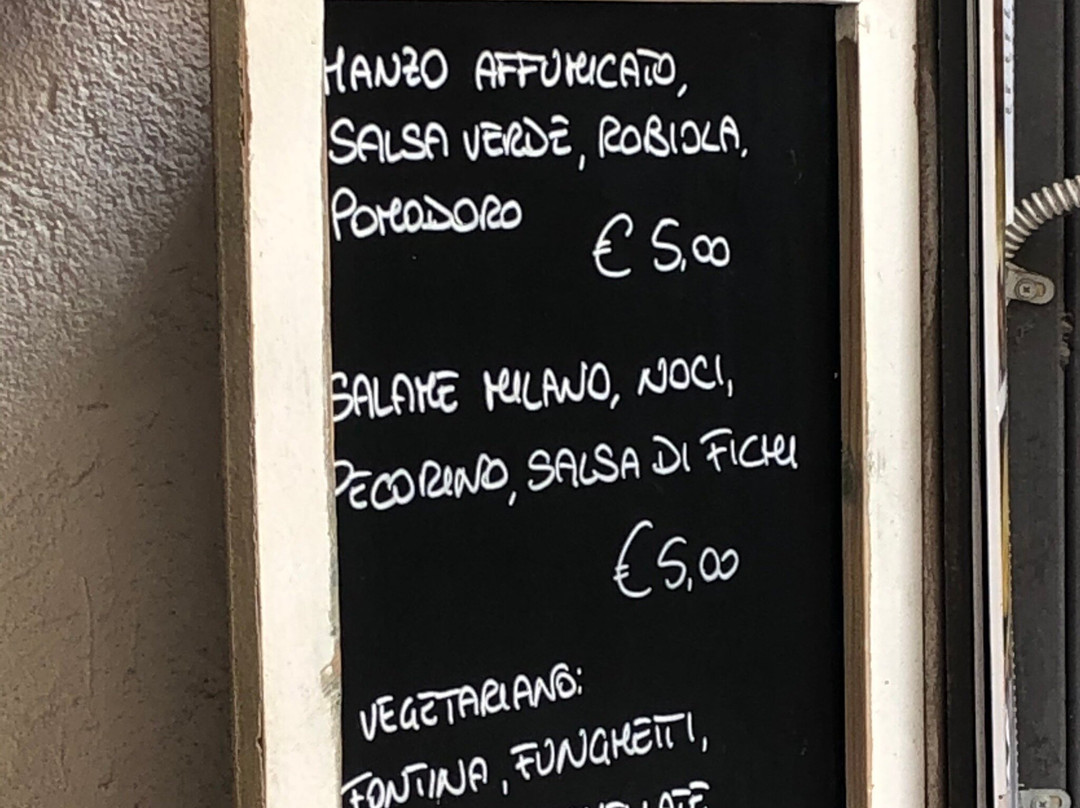 MANZO AFFUMICATO,
SALSA VERDE, ROBIOLA,
POMODORO
€ 5,00
SALAME MILANO, NOCI,
PECORINO, SALSA DI FICHI
€ 5,00
VEGETARIANO:
FONTINA, FUNGHETTI,